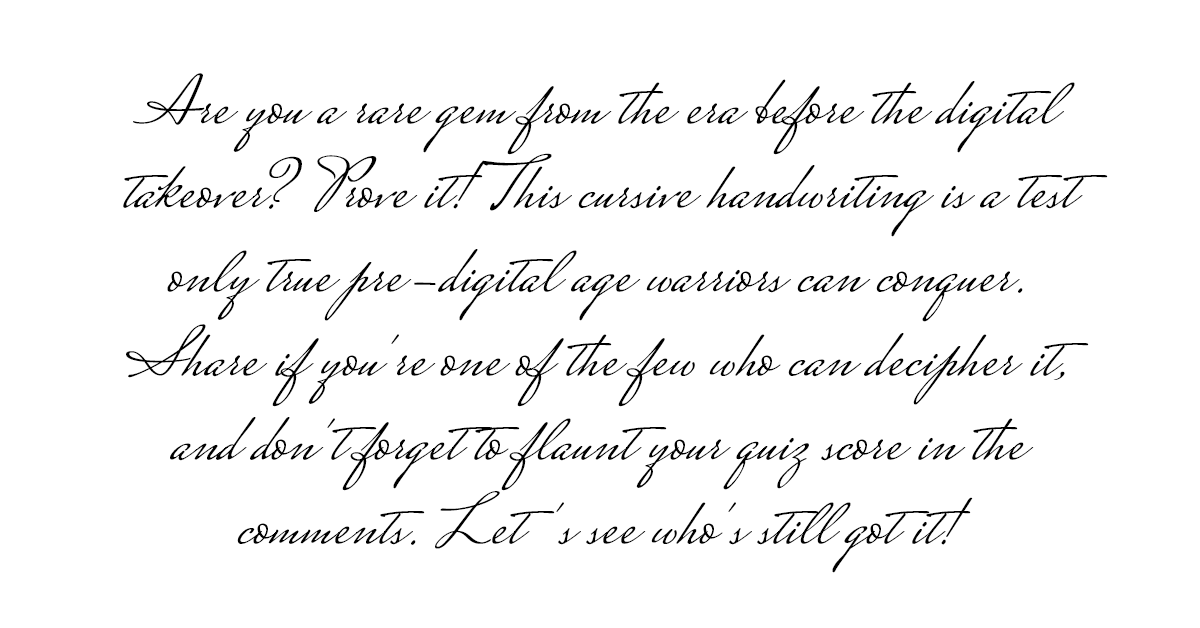 Are you a rare gem from the era before the digital
takeover? Prove it! This cursive handwriting is a test
only true pre-digital age warriors can conquer.
Share if you're one of the few who can decipher it,
and don't forget to flaunt your quiz score in the
comments. Let's see who's still got it!